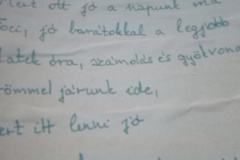 mert ott jó a napunk ma
foci, jó barátokkal a legjobb
latek óra, számolós és gyolvona
römmel járunk ide,
ert itt lenni jó